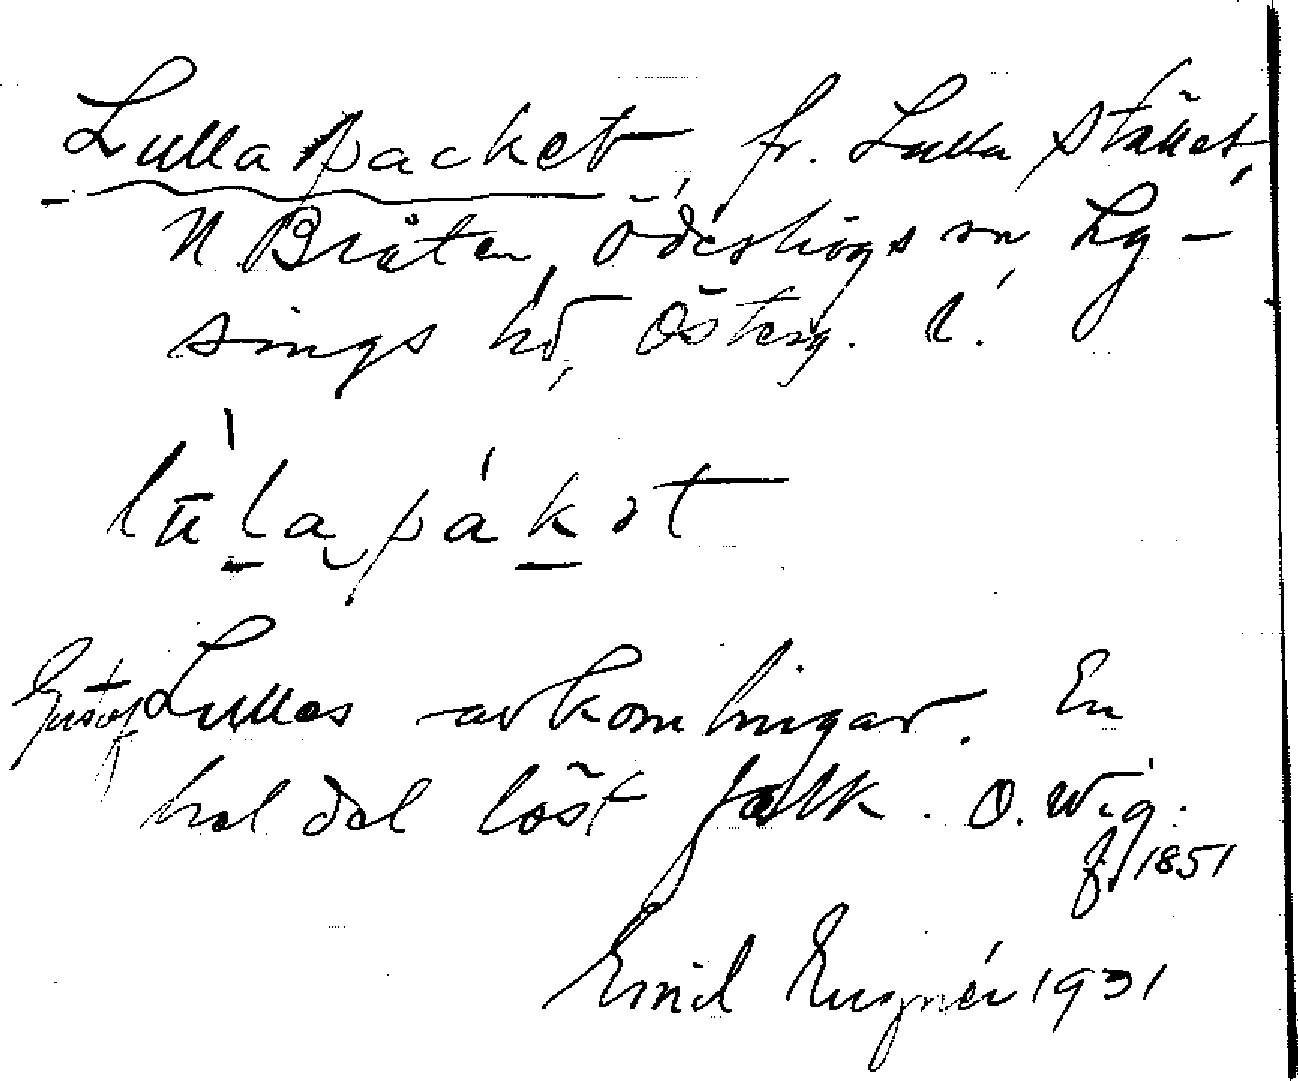 Lullapacket, fr. Lulla stället,
N Bråten, Ödeshögs sn Ly-
sings hd, Österg. l.
Gustaf Lullas avkomlingar. En
hel del löst folk. O. Wig.
f. 1851
Emil Eugnér 1931